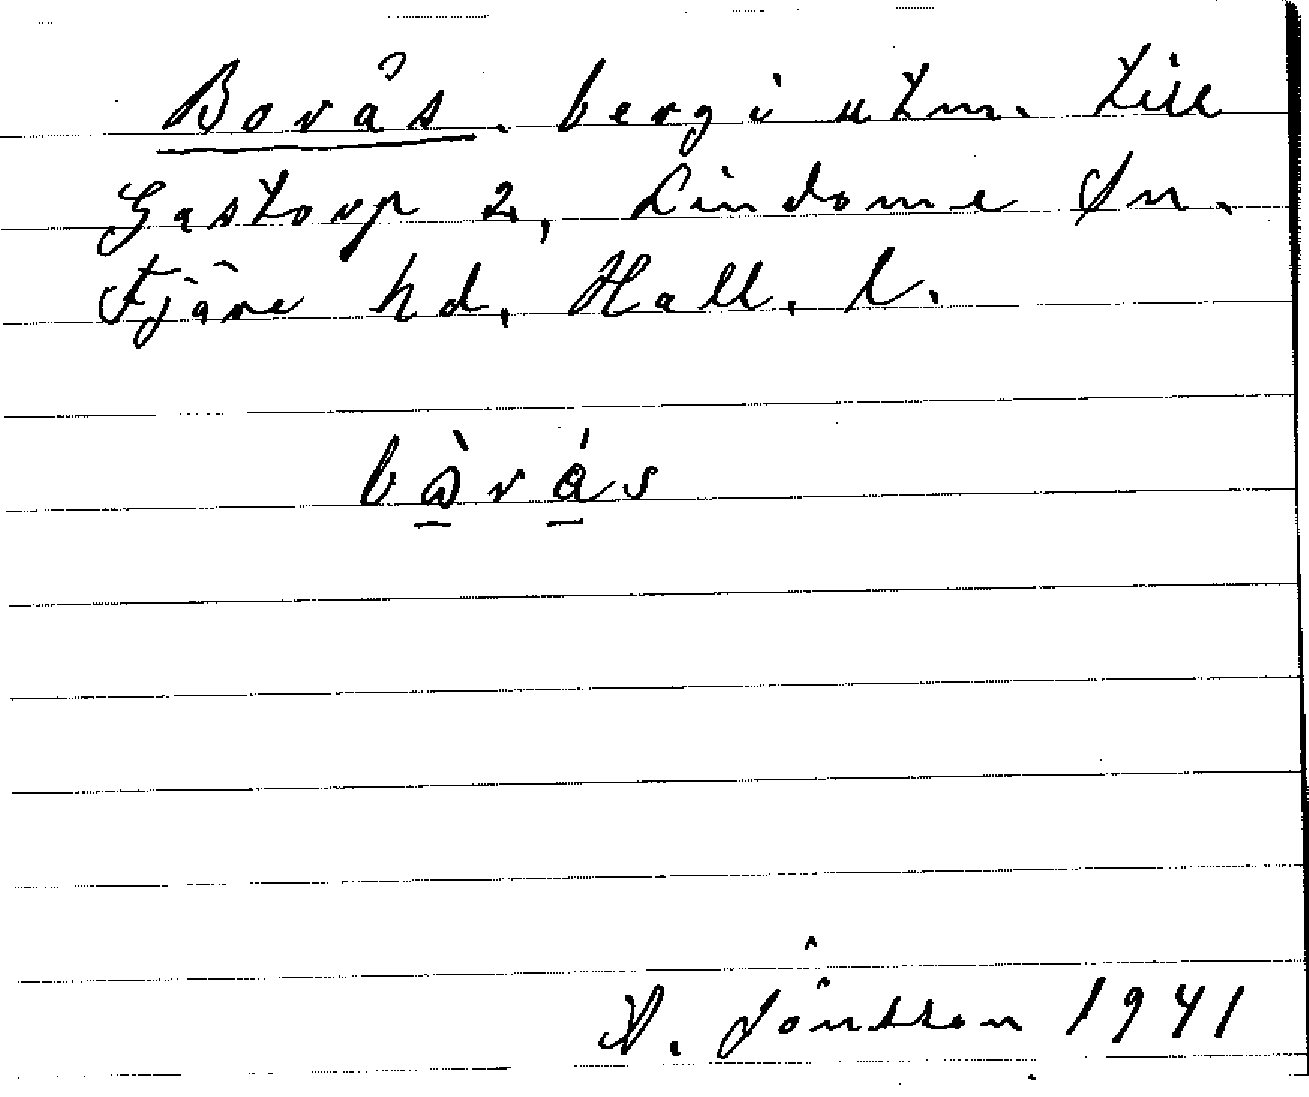 Borås. berg i utm. till
Gastorp 2, Lindome sn.
Fjäre hd, Hall. l.
bòrás
1941